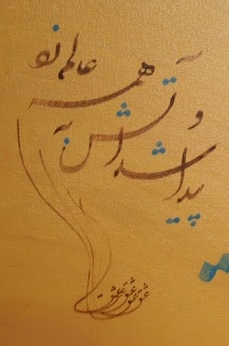 عشق
پیدا شد
و آتش به
همه
عالم زد